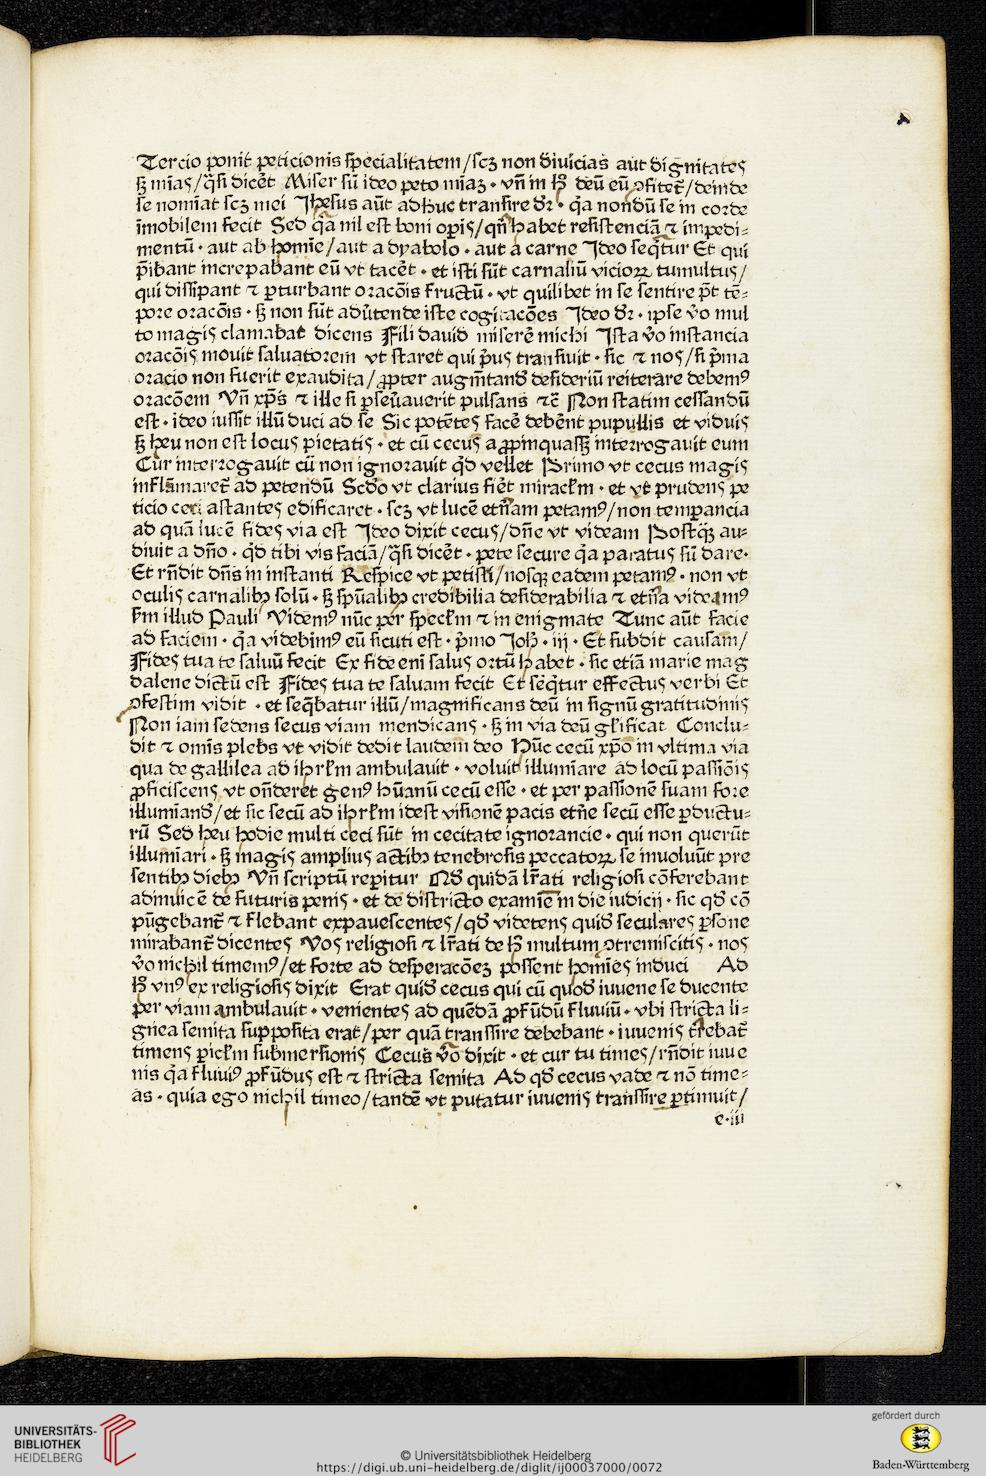 Tercio ponit peticionis specialitatem/scꝫ non diuicias aut dignitates
sꝫ mi̅as/q̅si dice̅t Miser su̅ ideo peto mi̅aꝫ · vn̅ in hͦ deu̅ eu̅ ꝯfitet᷑/deinde
se nomi̅at scꝫ mei Jhesus au̅t adhuc transire dr̅ · qa̅ nondu̅ se in corde
i̅mobilem fecit Sed qa̅ nil est boni oꝑis/qn̅ habet resistencia̅ ⁊ impedi⸗
mentu̅ · aut ab homi̅e/aut a dyabolo · aut a carne Jdeo seq̅tur Et qui
p̅ibant increpabant eu̅ vt tace̅t · et isti su̅t carnaliu̅ vicioꝝ tumultus/
qui dissipant ⁊ ꝑturbant oraco̅is fructu̅ · vt quilibet in se sentire p̅t te̅⸗
pore oraco̅is · sꝫ non su̅t adu̅tende iste cogitaco̅es Jdeo dr̅ · ipse v̅o mul
to magis clamabat dicens Fili dauid misere̅ michi Jsta v̅o instancia
oraco̅is mouit saluatorem vt staret qui p̅us transiuit · sic ⁊ nos/si p̅ma
oracio non fuerit exaudita/ꝓpter augm̅tand̅ desideriu̅ reiterare debemꝰ
oraco̅em Vn̅ xp̅s ⁊ ille si ꝑseu̅auerit pulsans ⁊c̅ Non statim cessandu̅
est · ideo iussit illu̅ duci ad se Sic pote̅tes face̅ debe̅t pupullis et viduis
sꝫ heu non est locus pietatis · et cu̅ cecus aꝓpinquassꝫ interrogauit eum
Cur interrogauit cu̅ non ignorauit qd̅ vellet Primo vt cecus magis
infla̅maret᷑ ad petendu̅ Scd̅o vt clarius fie̅t miracl̅m · et vt prudens pe
ticio ceci astantes edificaret · scꝫ vt luce̅ etn̅am petamꝰ/non temꝑancia
ad qua̅ luce̅ fides via est Jdeo dixit cecus/dn̅e vt videam Postq̅ꝫ au⸗
diuit a dn̅o · qd̅ tibi vis facia̅/q̅si dice̅t · pete secure qa̅ paratus su̅ dare·
Et rn̅dit dn̅s in instanti Respice vt petisti/nosqꝫ eadem petamꝰ · non vt
oculis carnalibꝫ solu̅ · sꝫ spu̅alibꝫ credibilia desiderabilia ⁊ etn̅a videamꝰ
s̅m illud Pauli Videmꝰ nu̅c per specl̅m ⁊ in enigmate Tunc au̅t facie
ad faciem · qa̅ videbimꝰ eu̅ sicuti est · p̅mo Joh̅ · iij · Et subdit causam/
Fides tua te saluu̅ fecit Ex fide eni̅ salus ortu̅ habet · sic etia̅ marie mag
dalene dictu̅ est Fides tua te saluam fecit Et seq̅tur effectus verbi Et
ꝯfestim vidit · et seq̅batur illu̅/magnificans deu̅ in signu̅ gratitudinis
Non iam sedens secus viam mendicans · sꝫ in via deu̅ gl̅ificat Conclu⸗
dit ⁊ omi̅s plebs vt vidit dedit laudem deo Hu̅c cecu̅ xp̅o in vltima via
qua de gallilea ad ihrl̅m ambulauit · voluit illumi̅are ad locu̅ passio̅is
ꝓficiscens vt on̅deret genꝰ hu̅anu̅ cecu̅ esse · et per passione̅ suam fore
illumi̅and̅/et sic secu̅ ad ihrl̅m idest visione̅ pacis etn̅e secu̅ esse ꝑductu⸗
ru̅ Sed heu hodie multi ceci su̅t in cecitate ignorancie · qui non queru̅t
illumi̅ari · sꝫ magis amplius actibꝫ tenebrosis peccatoꝝ se inuoluu̅t pre
sentibꝫ diebꝫ Vn̅ scriptu̅ reꝑitur Qd̅ quida̅ lr̅ati religiosi co̅ferebant
adinuice̅ de futuris penis · et de districto exami̅e in die iudicij · sic qd̅ co̅
pu̅gebant᷑ ⁊ flebant expauescentes/qd̅ videtens quid̅ seculares ꝑsone
mirabant᷑ dicentes Vos religiosi ⁊ lr̅ati de hͦ multum ꝯtremiscitis · nos
v̅o nichil timemꝰ/et forte ad desperaco̅eꝫ possent homi̅es induci Ad
hͦ vnꝰ ex religiosis dixit Erat quid̅ cecus qui cu̅ quod̅ iuuene se ducente
per viam ambulauit · venientes ad que̅da̅ ꝓfu̅du̅ fluuiu̅ · vbi stricta li⸗
gnea semita supposita erat/per qua̅ transsire debebant · iuuenis tr̅ebat᷑
timens ꝑicl̅m submersionis Cecus v̅o dixit · et cur tu times/rn̅dit iuue
nis qa̅ fluuiꝰ ꝓfu̅dus est ⁊ stricta semita Ad qd̅ cecus vade ⁊ no̅ time⸗
as · quia ego nichil timeo/tande̅ vt putatur iuuenis transsire ꝑtimuit/
e·iii
UNIVERSITÄTS-
BIBLIOTHEK
HEIDELBERG
© Universitätsbibliothek Heidelberg
https://digi.ub.uni-heidelberg.de/diglit/ij00037000/0072
gefördert durch
Baden-Württemberg